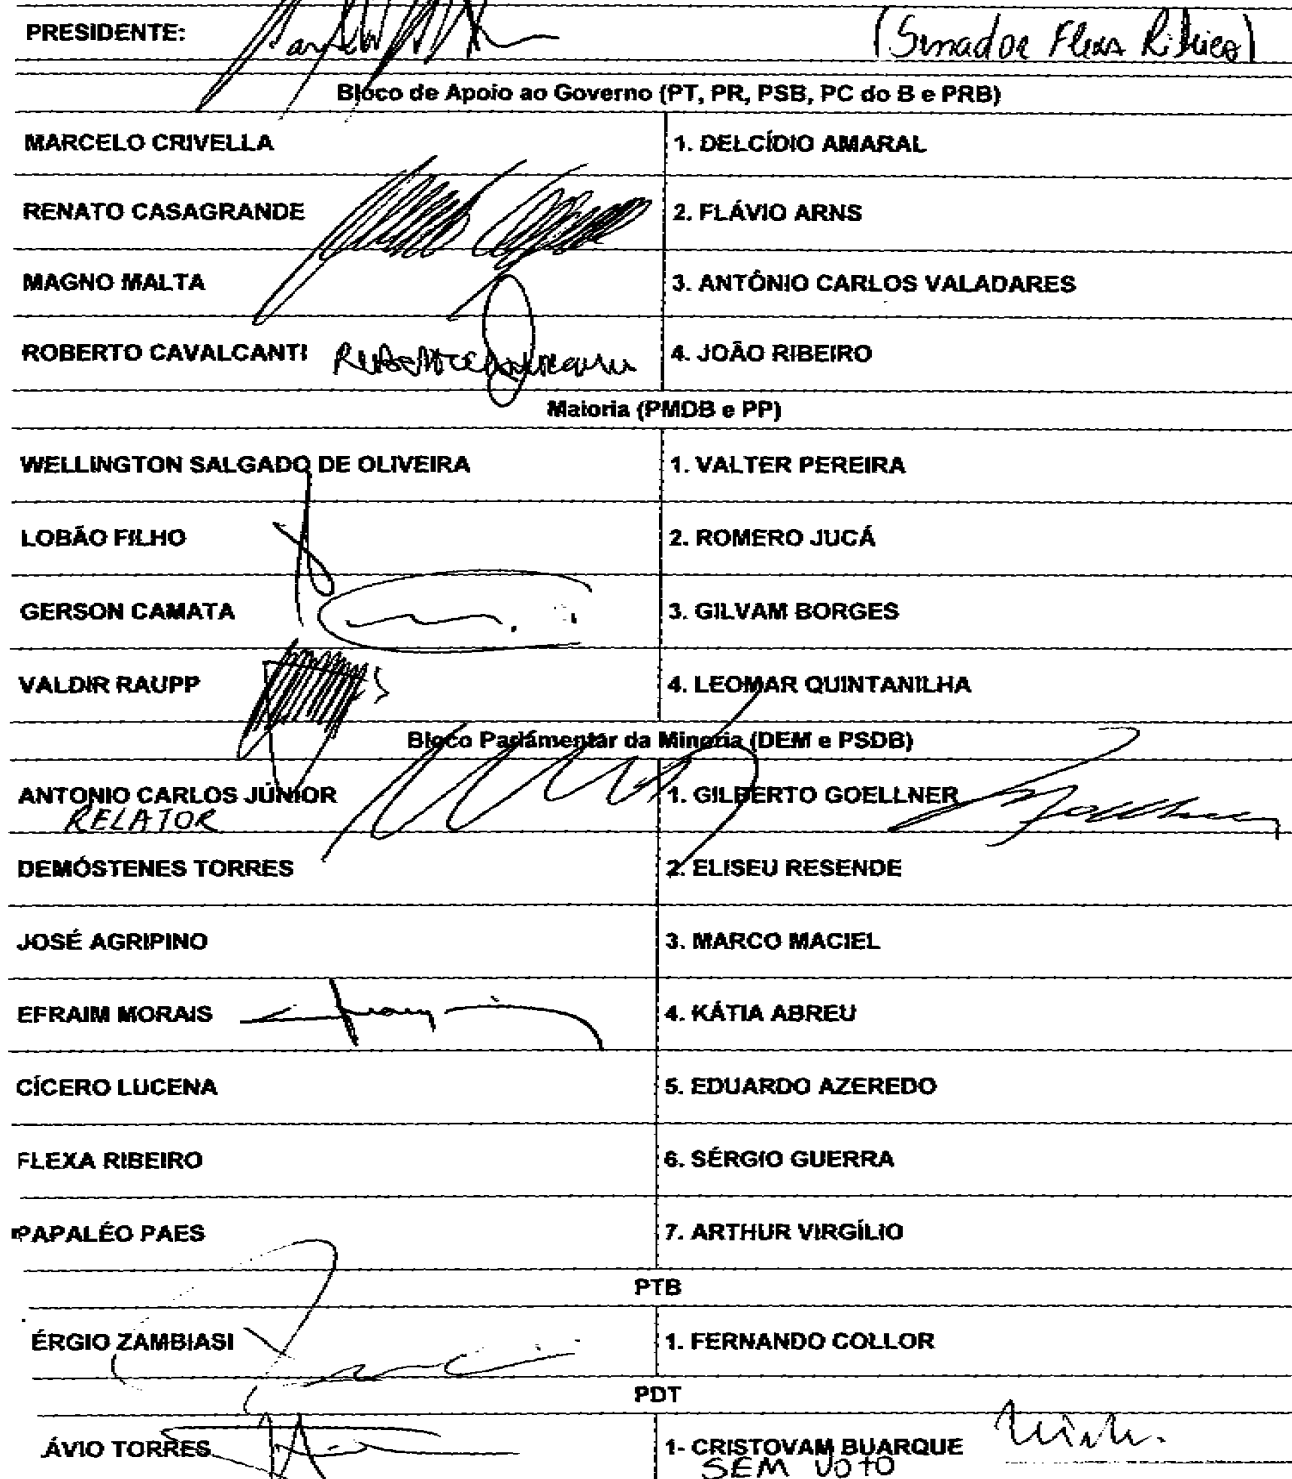 PRESIDENTE: (Senador Flexa Ribeiro)
Bloco de Apoio ao Governo (PT, PR, PSB, PC do B e PRB)
MARCELO CRIVELLA 1. DELCÍDIO AMARAL
RENATO CASAGRANDE 2. FLÁVIO ARNS
MAGNO MALTA 3. ANTÔNIO CARLOS VALADARES
ROBERTO CAVALCANTI 4. JOÃO RIBEIRO
Maioria (PMDB e PP)
WELLINGTON SALGADO DE OLIVEIRA 1. VALTER PEREIRA
LOBÃO FILHO 2. ROMERO JUCÁ
GERSON CAMATA 3. GILVAM BORGES
VALDIR RAUPP 4. LEOMAR QUINTANILHA
Bloco Parlamentar da Minoria (DEM e PSDB)
ANTONIO CARLOS JÚNIOR 1. GILBERTO GOELLNER
RELATOR
DEMÓSTENES TORRES 2. ELISEU RESENDE
JOSÉ AGRIPINO 3. MARCO MACIEL
EFRAIM MORAIS 4. KÁTIA ABREU
CÍCERO LUCENA 5. EDUARDO AZEREDO
FLEXA RIBEIRO 6. SÉRGIO GUERRA
PAPALÉO PAES 7. ARTHUR VIRGÍLIO
PTB
ÉRGIO ZAMBIASI 1. FERNANDO COLLOR
PDT
ÁVIO TORRES 1- CRISTOVAM BUARQUE
SEM VOTO